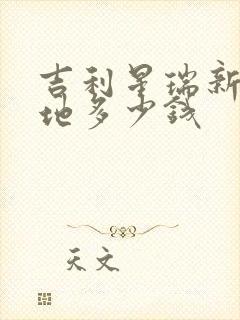 吉利星瑞新
地多少钱
天文